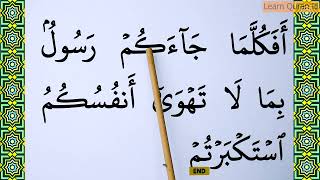 Learn Quran
أَفَكُلَّمَا جَآءَكُمْ رَسُولٌۢ
بِمَا لَا تَهْوَىٰٓ أَنفُسُكُمُ
ٱسْتَكْبَرْتُمْ
END